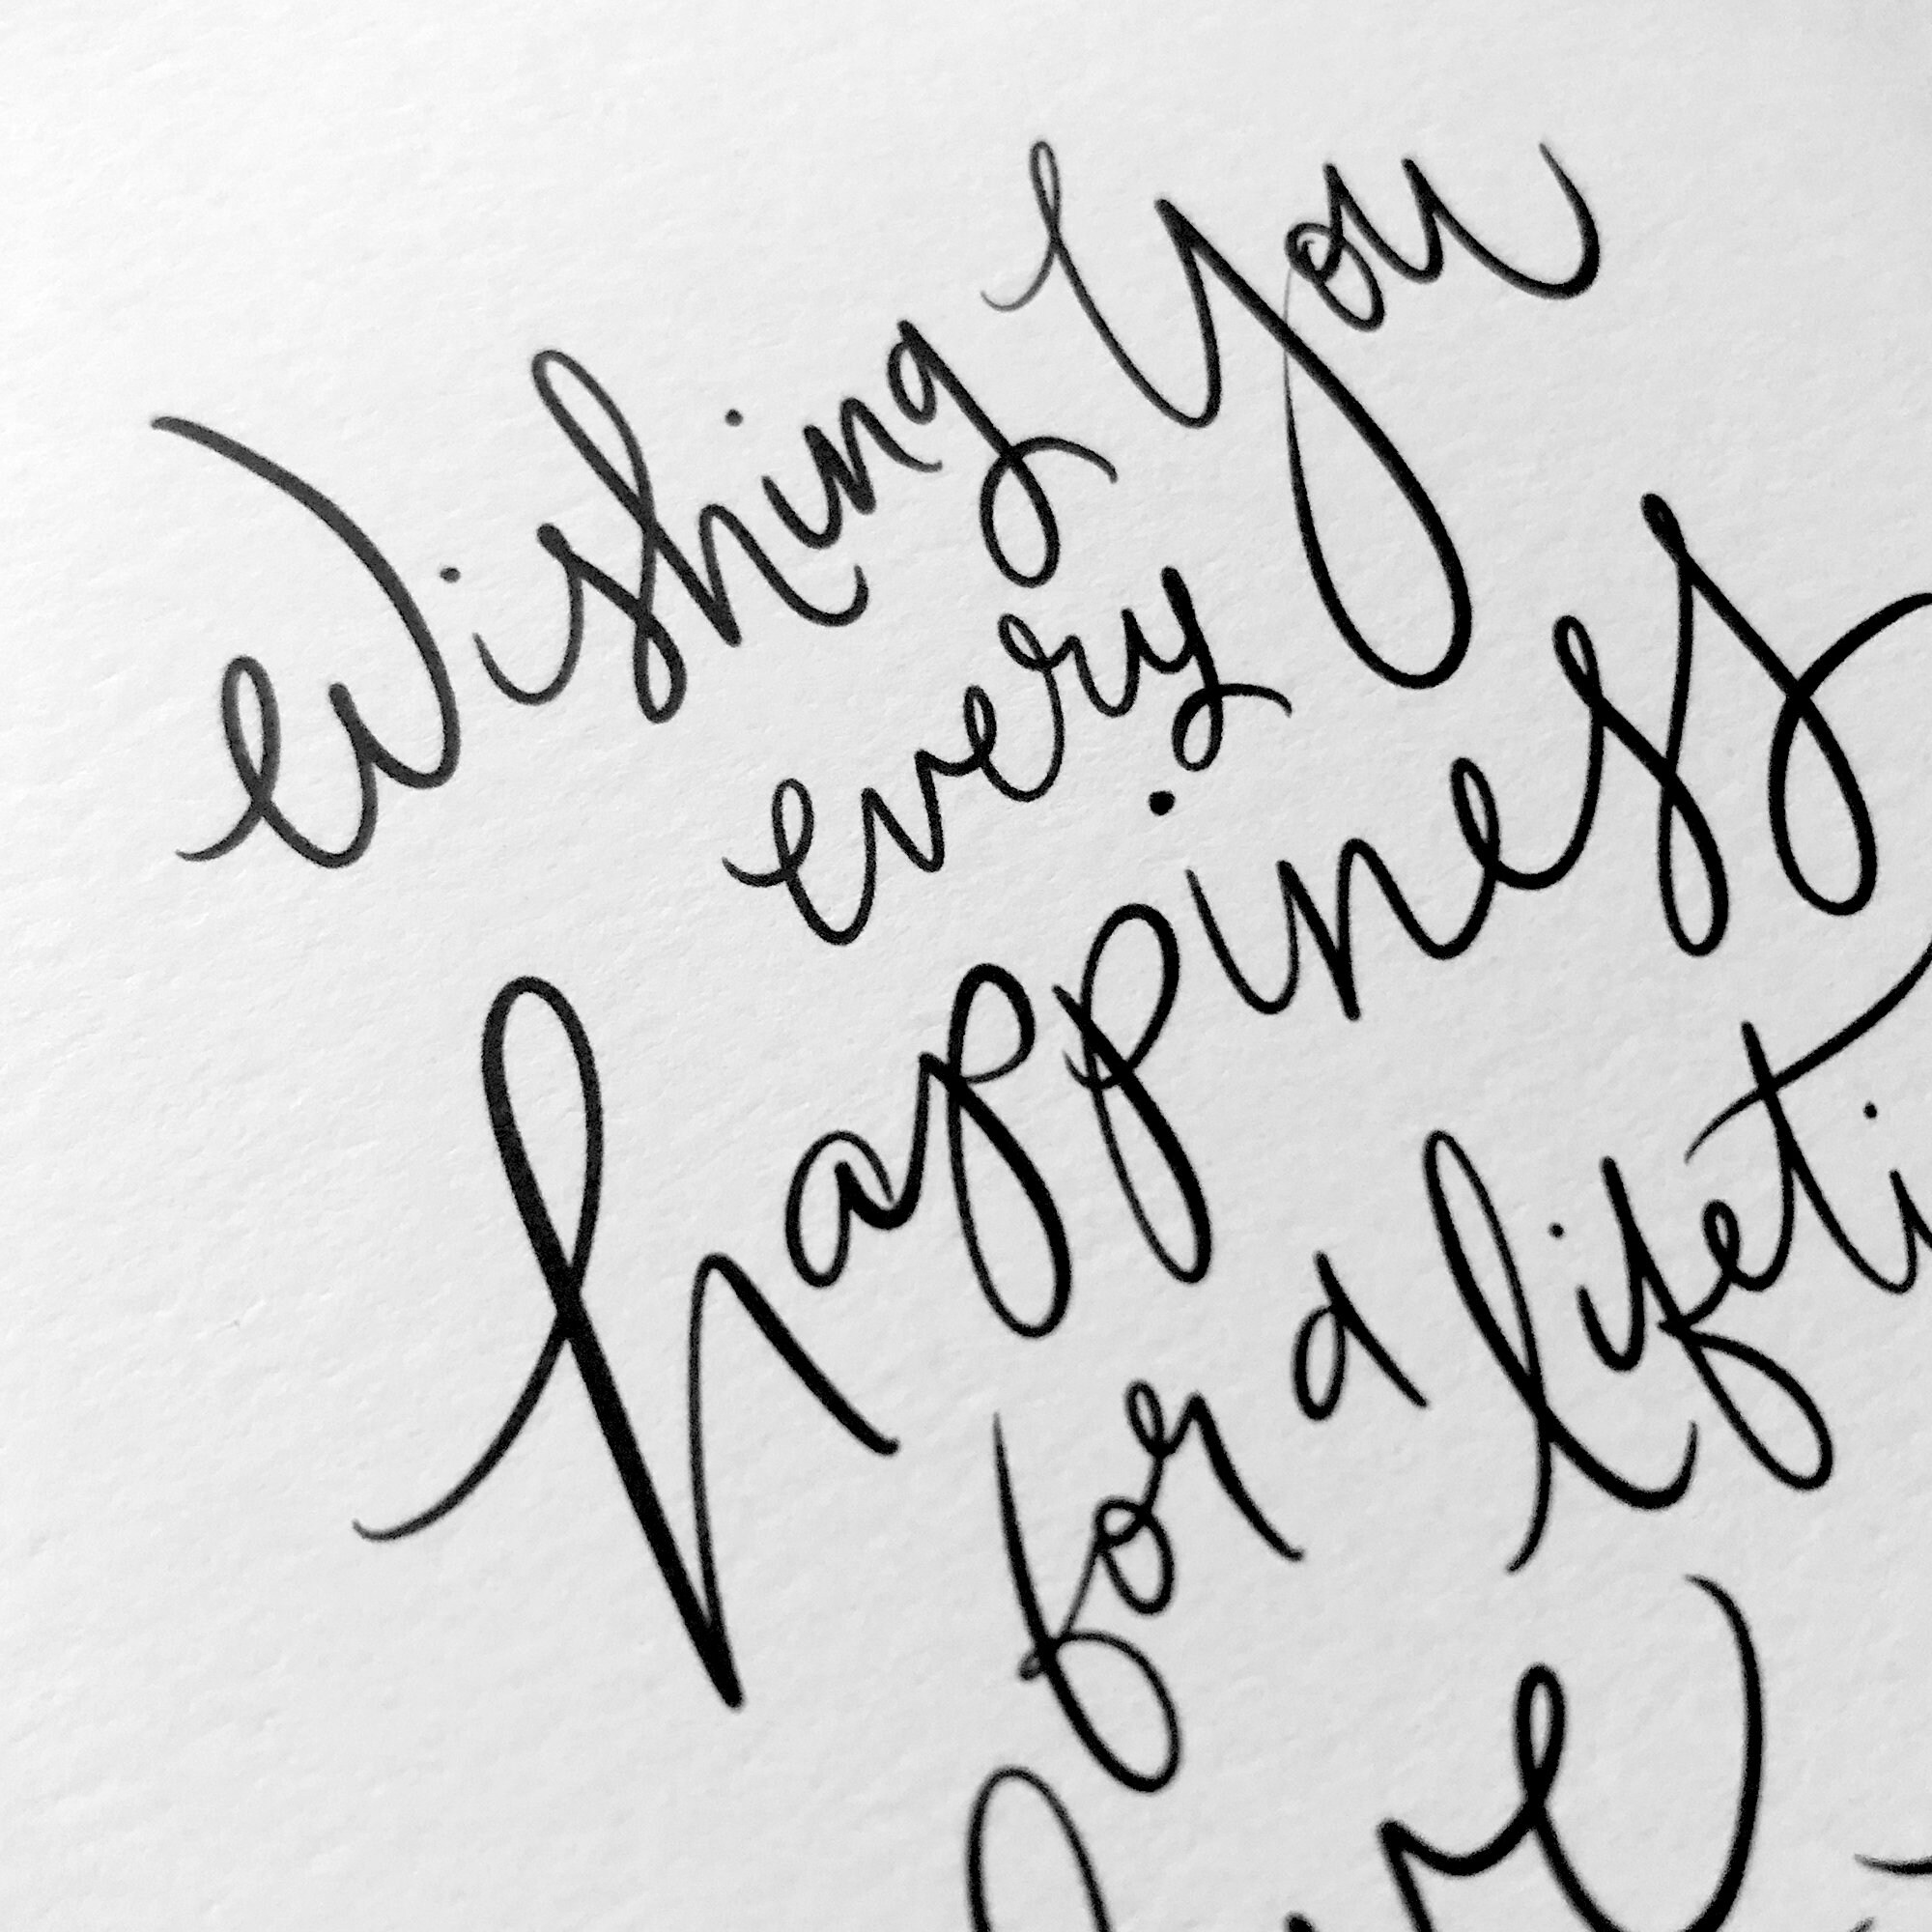 Wishing you
every
happiness
for a lifeti